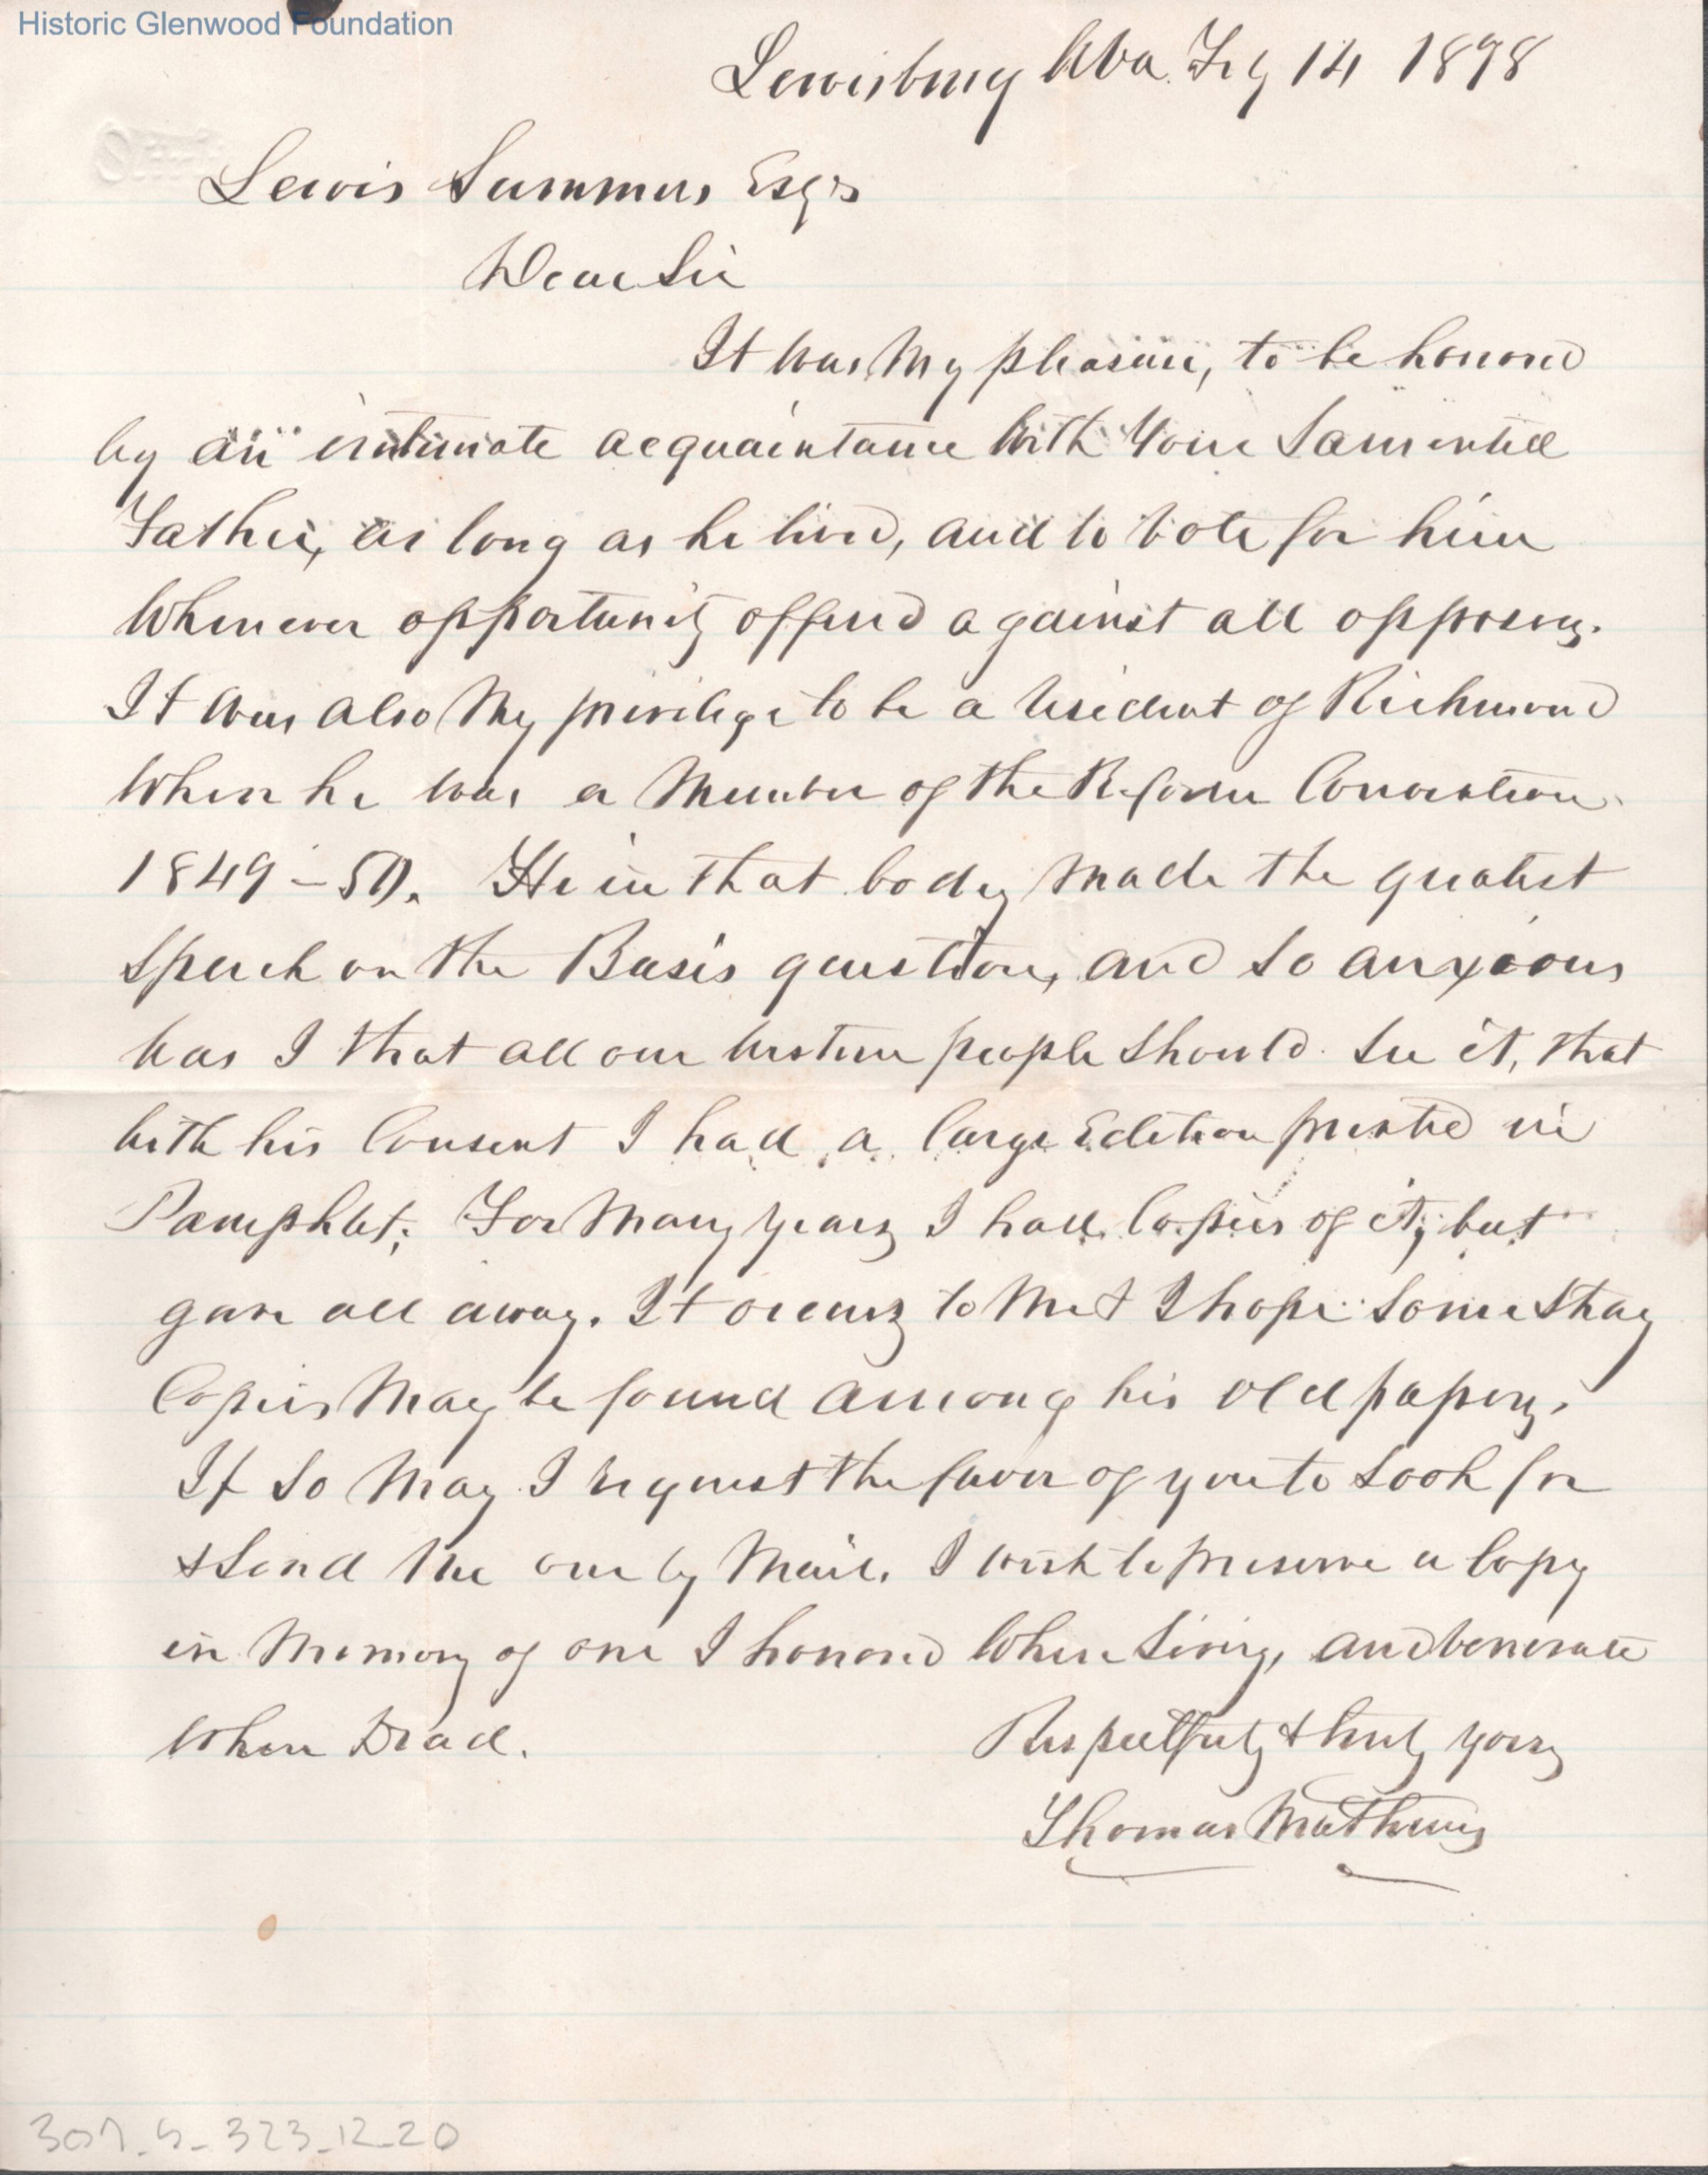 Historic Glenwood Foundation
Lewisburg WVa. Fey 14 1898
Lewis Summers Esqr
Dear Sir
It was my pleasure, to be honored
by an intimate acquaintance with your Lamented
Father, as long as he lived, and to vote for him
Whenever opportunity offered against all opposers.
It was also my privilege to be a resident of Richmond
When he was a Member of the Reform Convention
1849-50. He in that body made the greatest
Speech on the Basis question, and so anxious
was I that all our western people should see it, that
with his Consent I had a large Edition printed in
Pamphlet; For many years I had Copies of it; but
gave all away. It occurs to me & I hope some stray
Copies May be found among his old papers.
If so May I request the favor of you to Look for
& Send me one by Mail. I wish to preserve a Copy
in Memory of one I honored When Living, and venerate
When Dead.
Respectfully & truly yours
Thomas Mathews
307-5-323-12-20